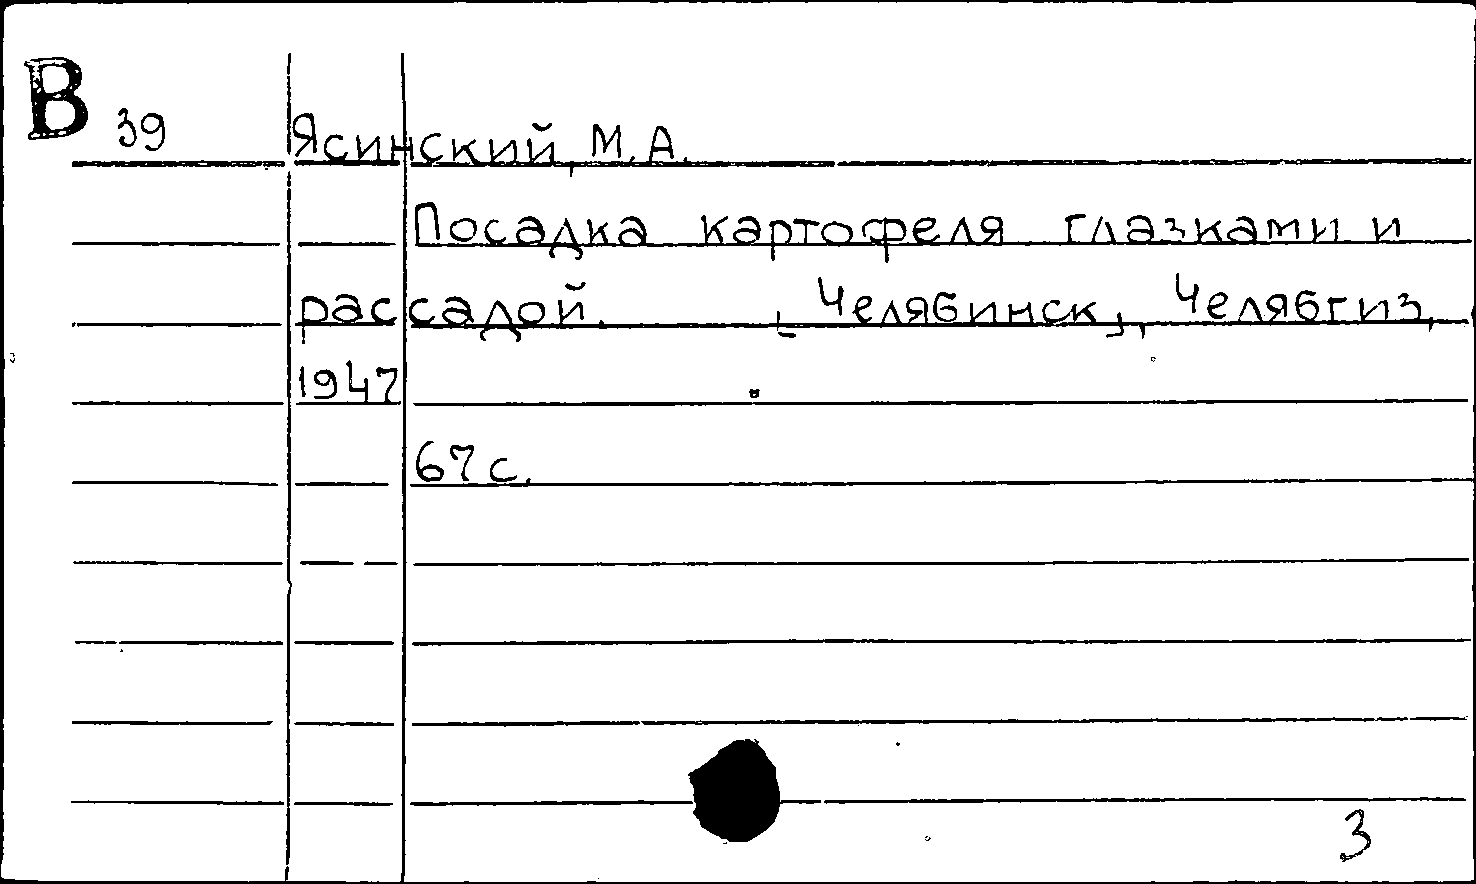 В 39 Ясинский, М. А.
Посадка картофеля глазками и
рассадой. [Челябинск], Челябгиз,
1947
67 с.
3